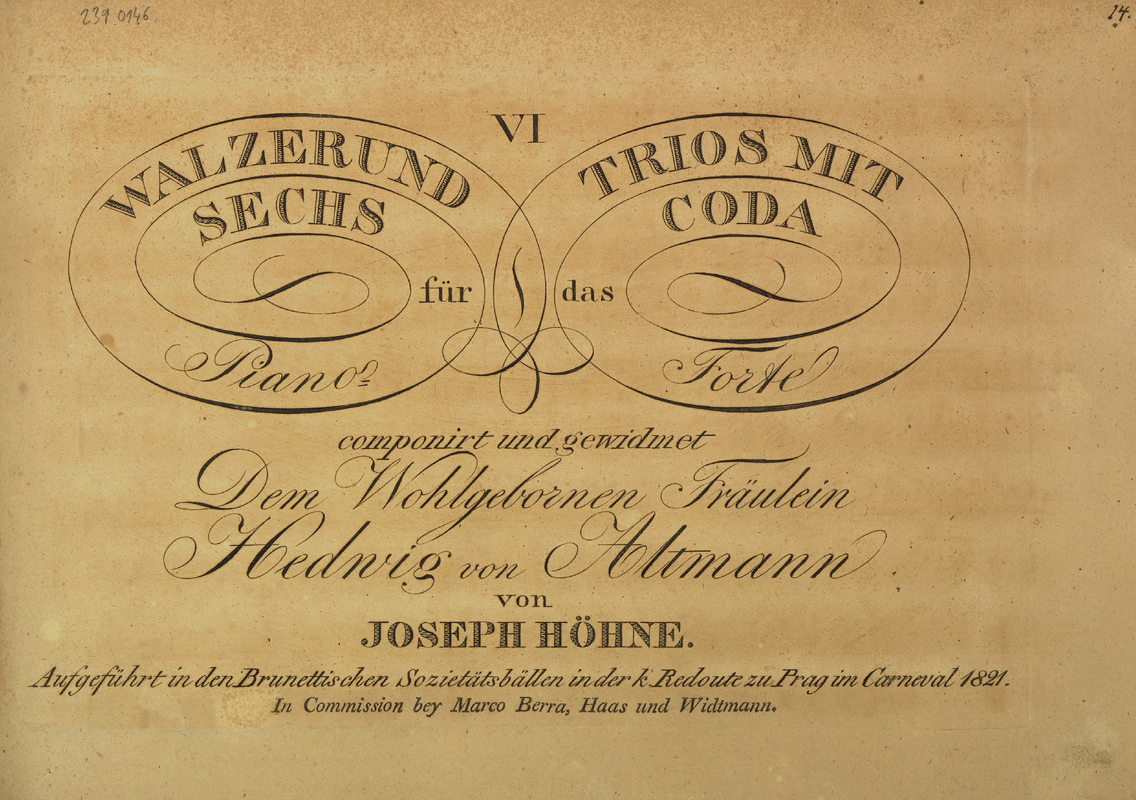 239.0146
14.
VI
WALZER UND
TRIOS MIT
SECHS
CODA
für das
Piano=
Forte
componirt und gewidmet
Dem Wohlgebornen Fräulein
Hedwig von Altmann
von
JOSEPH HÖHNE.
Aufgeführt in den Brunettischen Sozietätsbällen in der k. Redoute zu Prag im Carneval 1821.
In Commission bey Marco Berra, Haas und Widtmann.